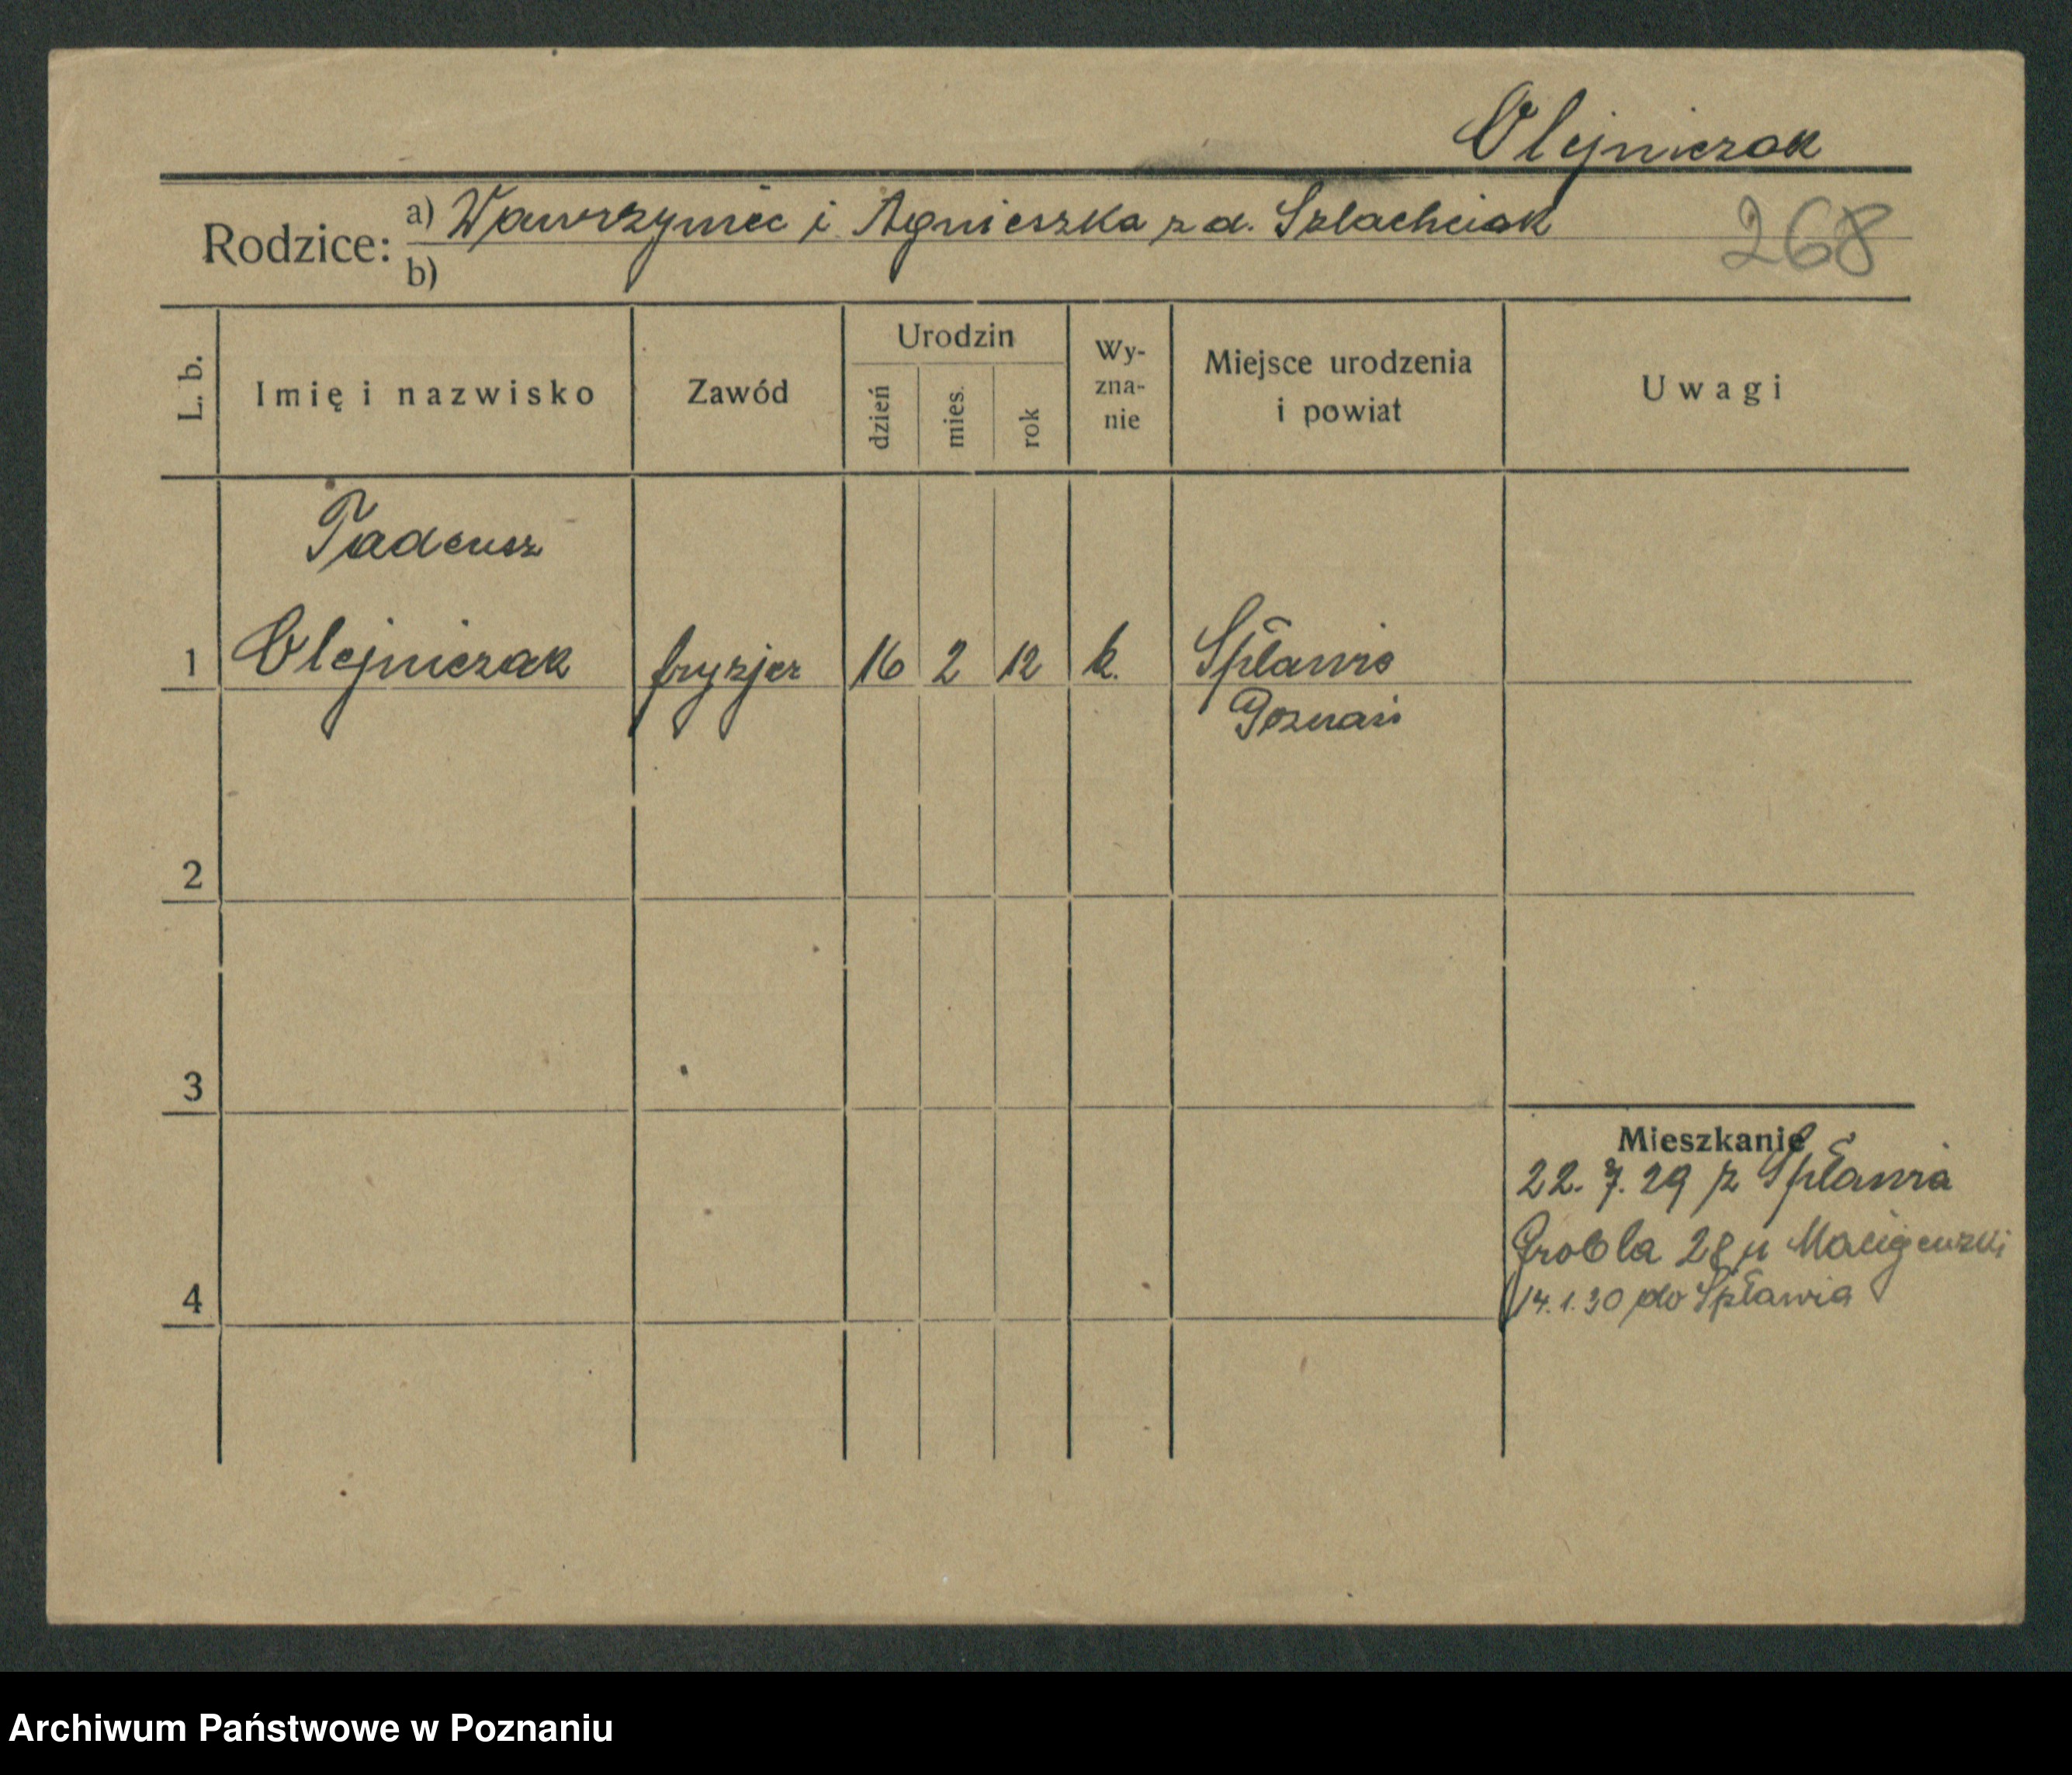 Olejniczak
Rodzice: a) Wawrzyniec i Agnieszka z d. Szlachciak
268
b)
L. b.
Imię i nazwisko
Zawód
Urodzin
dzień
mies.
rok
Wy-
zna-
nie
Miejsce urodzenia
i powiat
Uwagi
Tadeusz
1 Olejniczak fryzjer 16 2 12 k. Spławie
Poznań
2
3
Mieszkanie
22. 7. 29 z Spławia
Grobla 28 u
4
14. 1. 30 do Spławia
Archiwum Państwowe w Poznaniu